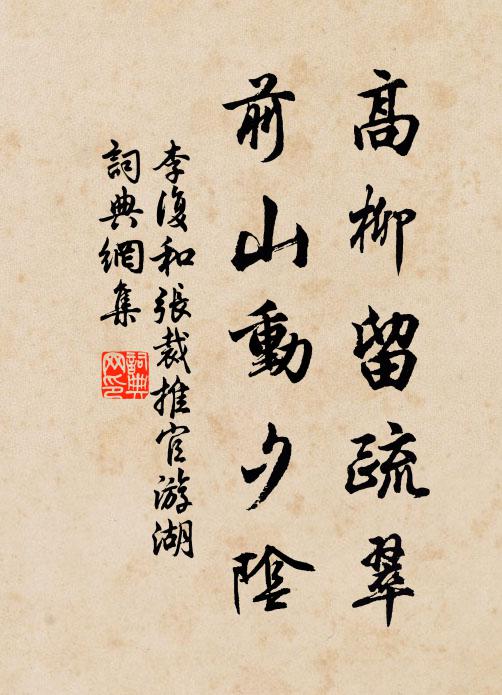 高柳留疏翠
前山動夕陰
李復和張裁推官游湖
詞典網集
詞典网印